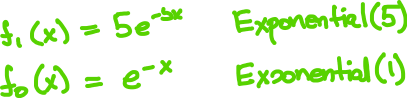 f₁(x) = 5e⁻⁵ˣ Exponential(5)
f₀(x) = e⁻ˣ Exponential(1)